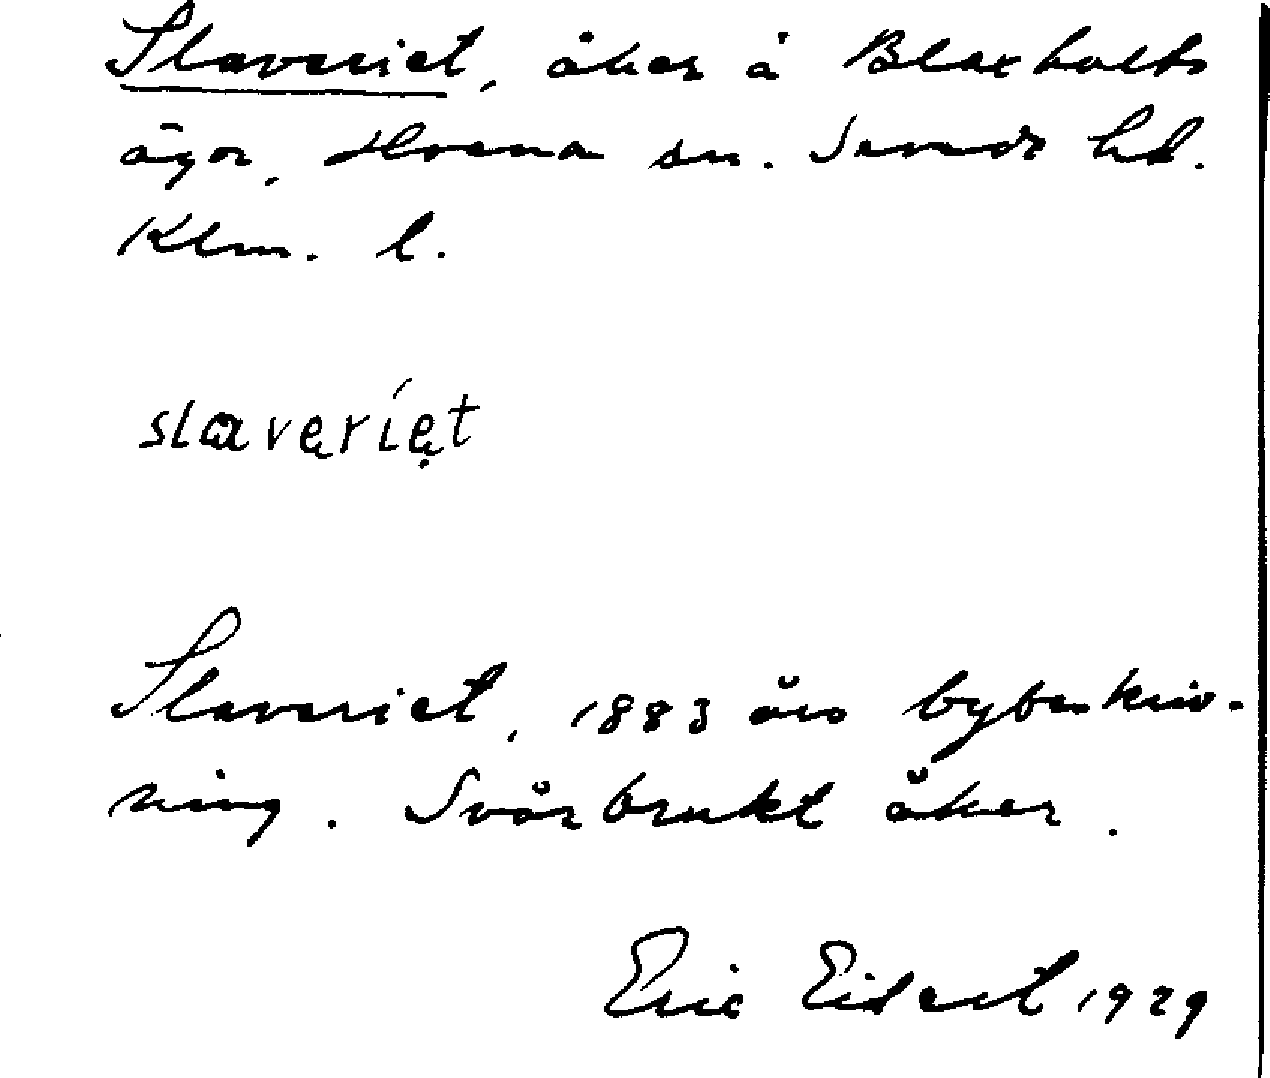 Slaveriet, åker å Blaxhults
ägor, Hvena sn. Sevede hd.
Klm. l.
slaveriet
Slaveriet, 1883 års bybeskriv-
ning. Svårbrukt åker.
Eric Eidert 1929